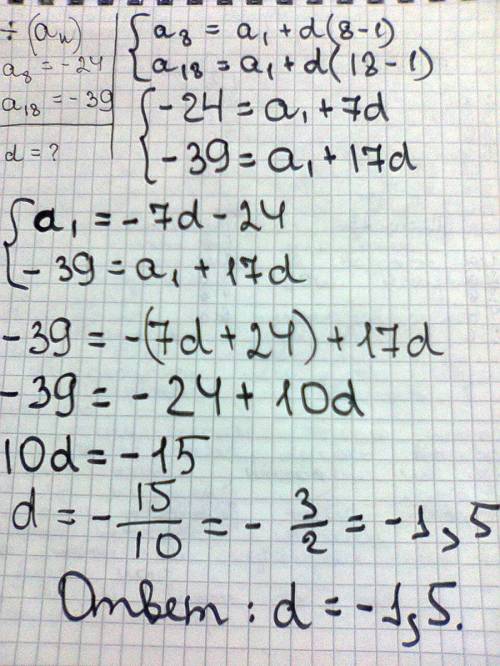 ÷ (aₙ)
a₈ = -24
a₁₈ = -39
d = ?
{ a₈ = a₁ + d(8-1)
a₁₈ = a₁ + d(18-1)
{ -24 = a₁ + 7d
-39 = a₁ + 17d
{ a₁ = -7d - 24
-39 = a₁ + 17d
-39 = -(7d + 24) + 17d
-39 = -24 + 10d
10d = -15
d = - 15/10 = - 3/2 = -1,5
Ответ: d = -1,5.